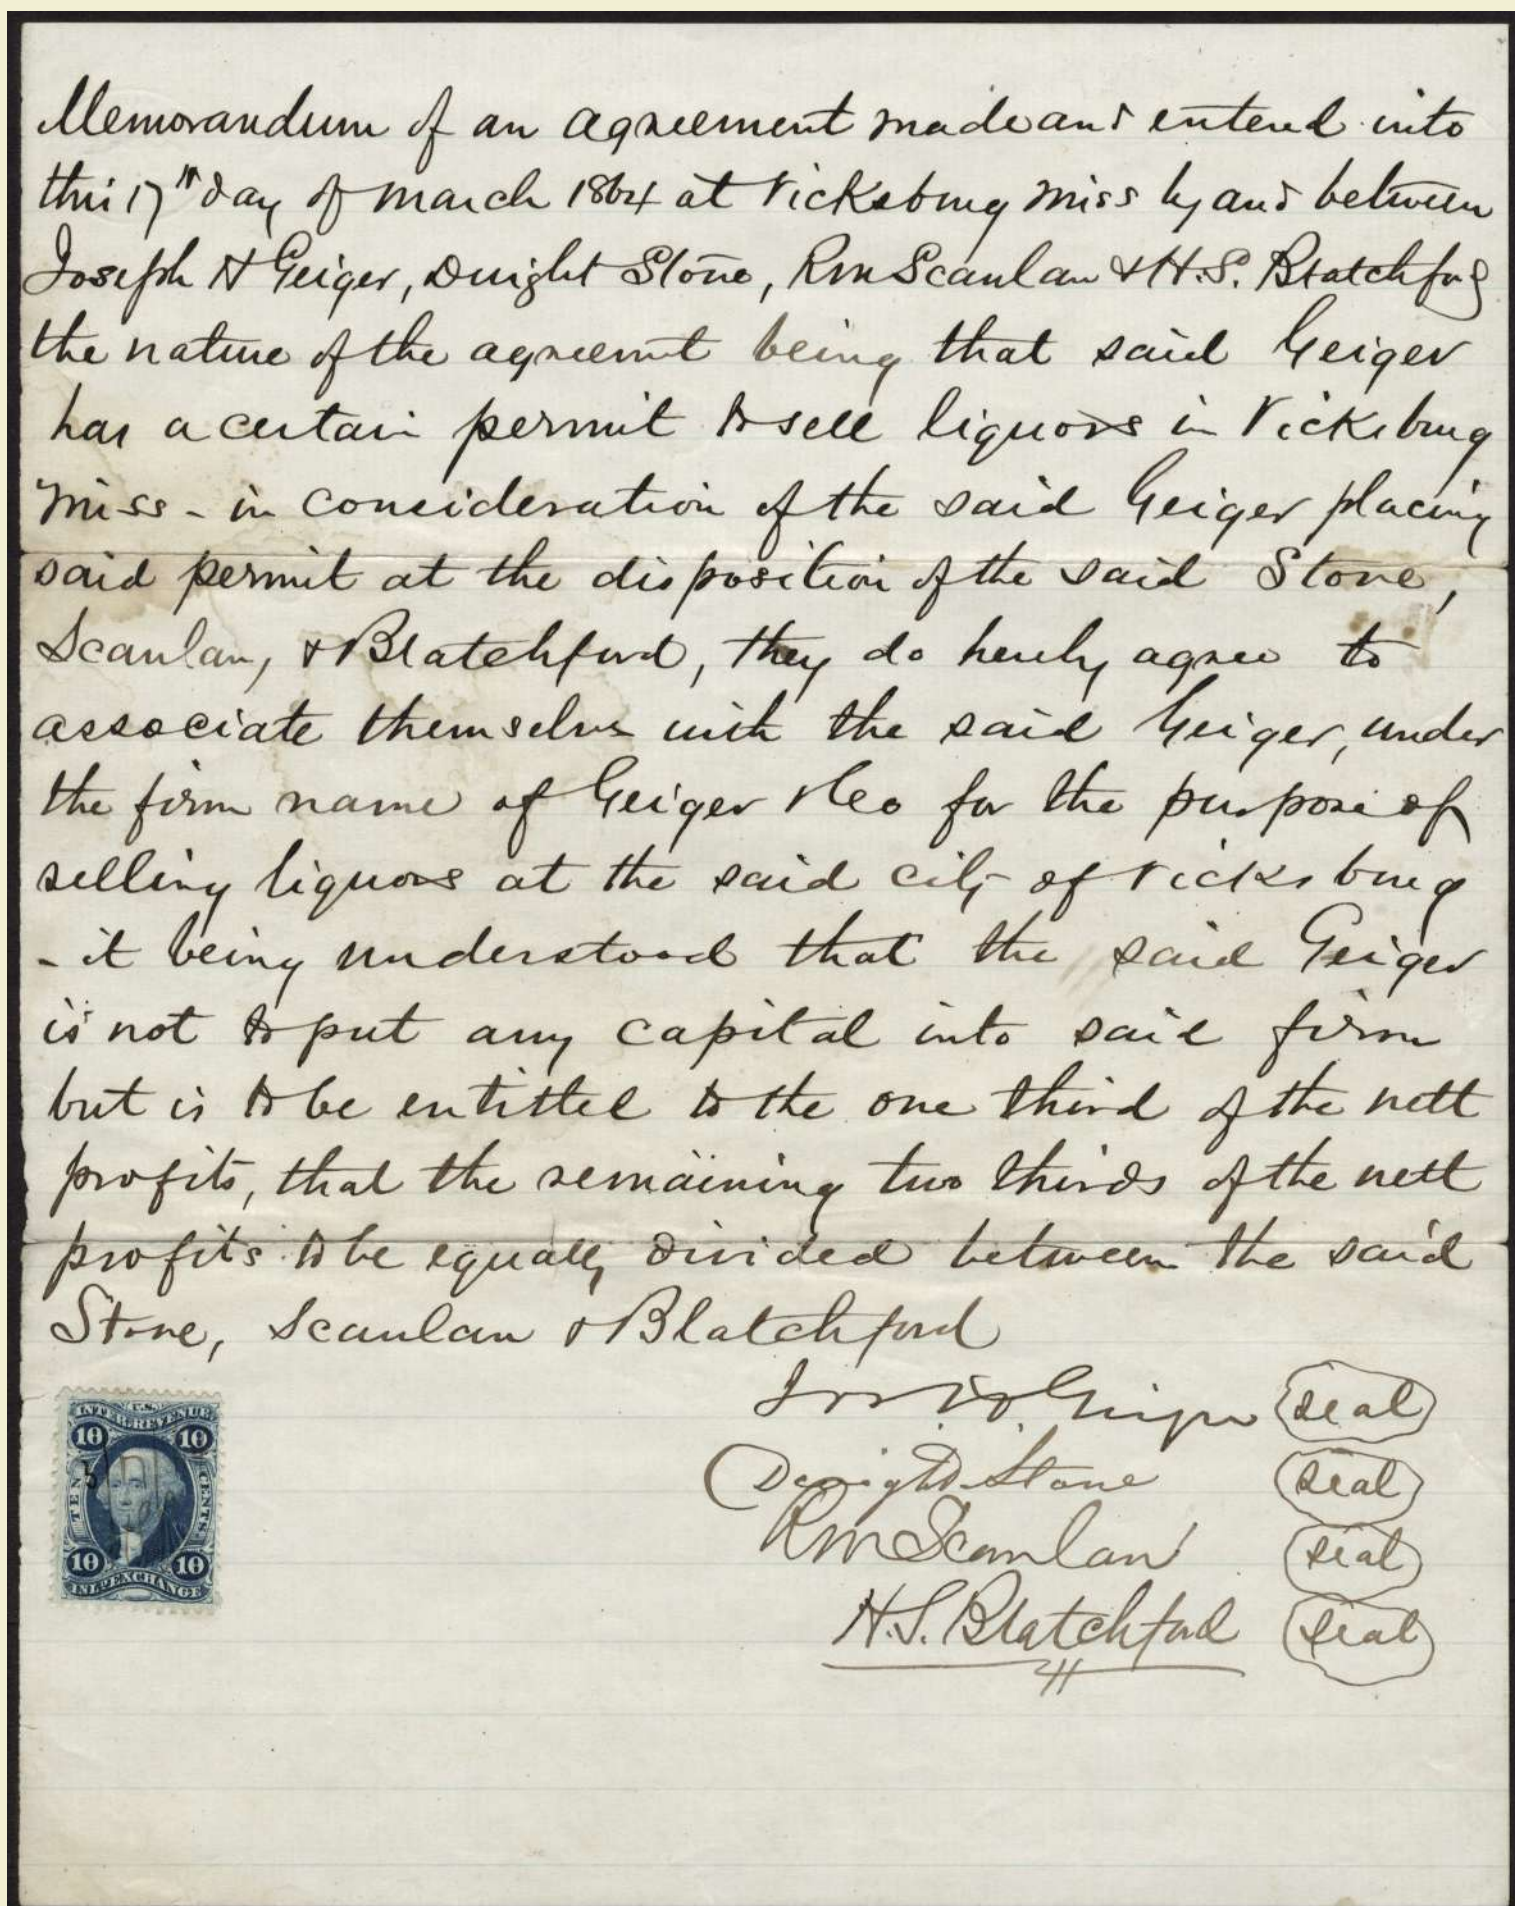 Memorandum of an agreement made and entered into
this 17th day of March 1864 at Vicksburg Miss by and between
Joseph H Geiger, Dwight Stone, Rm Scanlan & H.S. Blatchford
the nature of the agreemt being that said Geiger
has a certain permit to sell liquors in Vicksburg
Miss - in consideration of the said Geiger placing
said permit at the disposition of the said Stone,
Scanlan, & Blatchford, they do hereby agree to
associate themselves with the said Geiger, under
the firm name of Geiger & Co for the purpose of
selling liquors at the said city of Vicksburg
- it being understood that the said Geiger
is not to put any capital into said firm
but is to be entitled to the one third of the nett
profits, that the remaining two thirds of the nett
profits to be equally divided between the said
Stone, Scanlan & Blatchford
Jos. H. Geiger seal
Dwight Stone seal
Rm Scanlan seal
H.S. Blatchford seal
U.S.
INTER. REVENUE
10 10
TEN CENTS
10 10
INL'D EXCHANGE